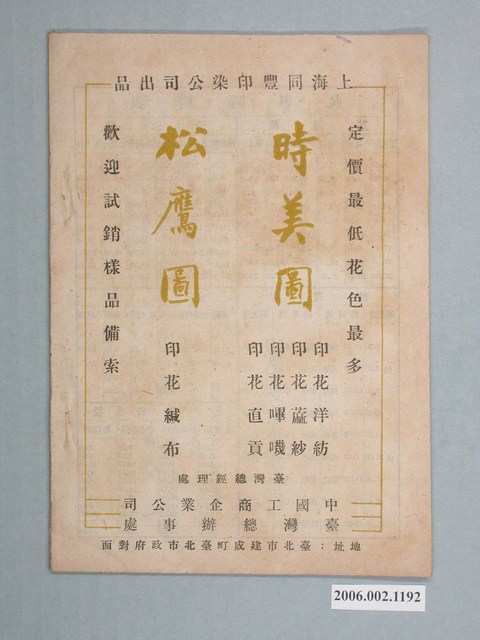 上海同豐印染公司出品
定價最低花色最多
時美圖
印花洋紡
印花蔴紗
印花嗶嘰
印花直貢
松鷹圖
印花絨布
歡迎試銷樣品備索
臺灣總經理處
中國工商企業公司
臺灣總辦事處
地址：臺北市建成町臺北市政府對面
2006.002.1192